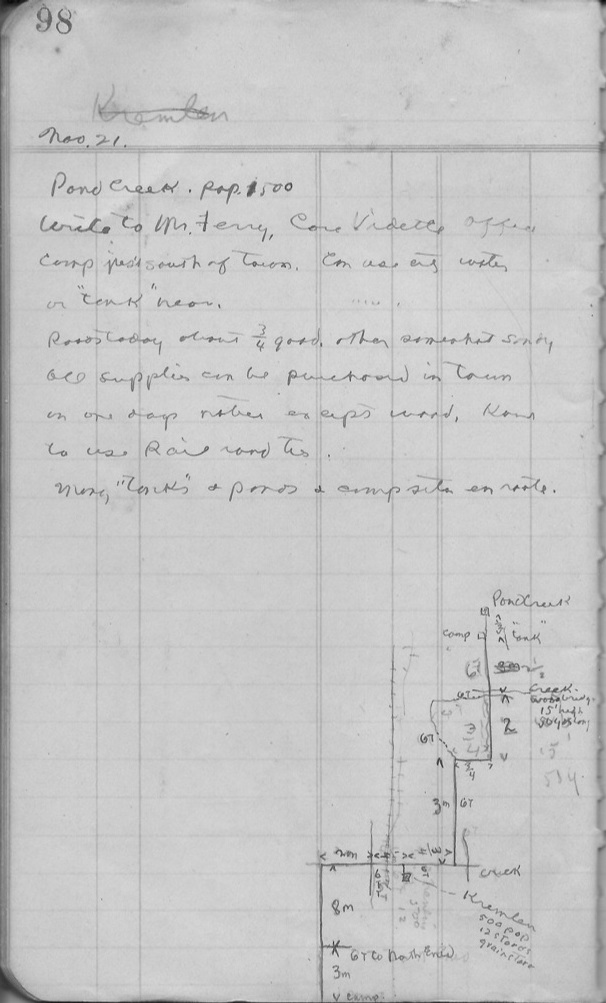 98
Kremlen
Nov. 21.
Pond Creek. pop. 1500
Write to Mr. Ferry, Care Vidette office
Camp just south of town. Can use city water
or "tank" near.
Roads today about 3/4 good, other somewhat sandy
All supplies can be purchased in town
on one days notice except wood, Have
to use Rail road ties.
Many "Tanks" & ponds & camp sites en route.
Pond Creek
Camp
"Tank"
6T
Creek.
6T
15' high
2
6T
3/4
3m
6T
2m
Creek
8m
Kremlen
500 pop
12 stores
grain store
6T to North End
3m
Camp